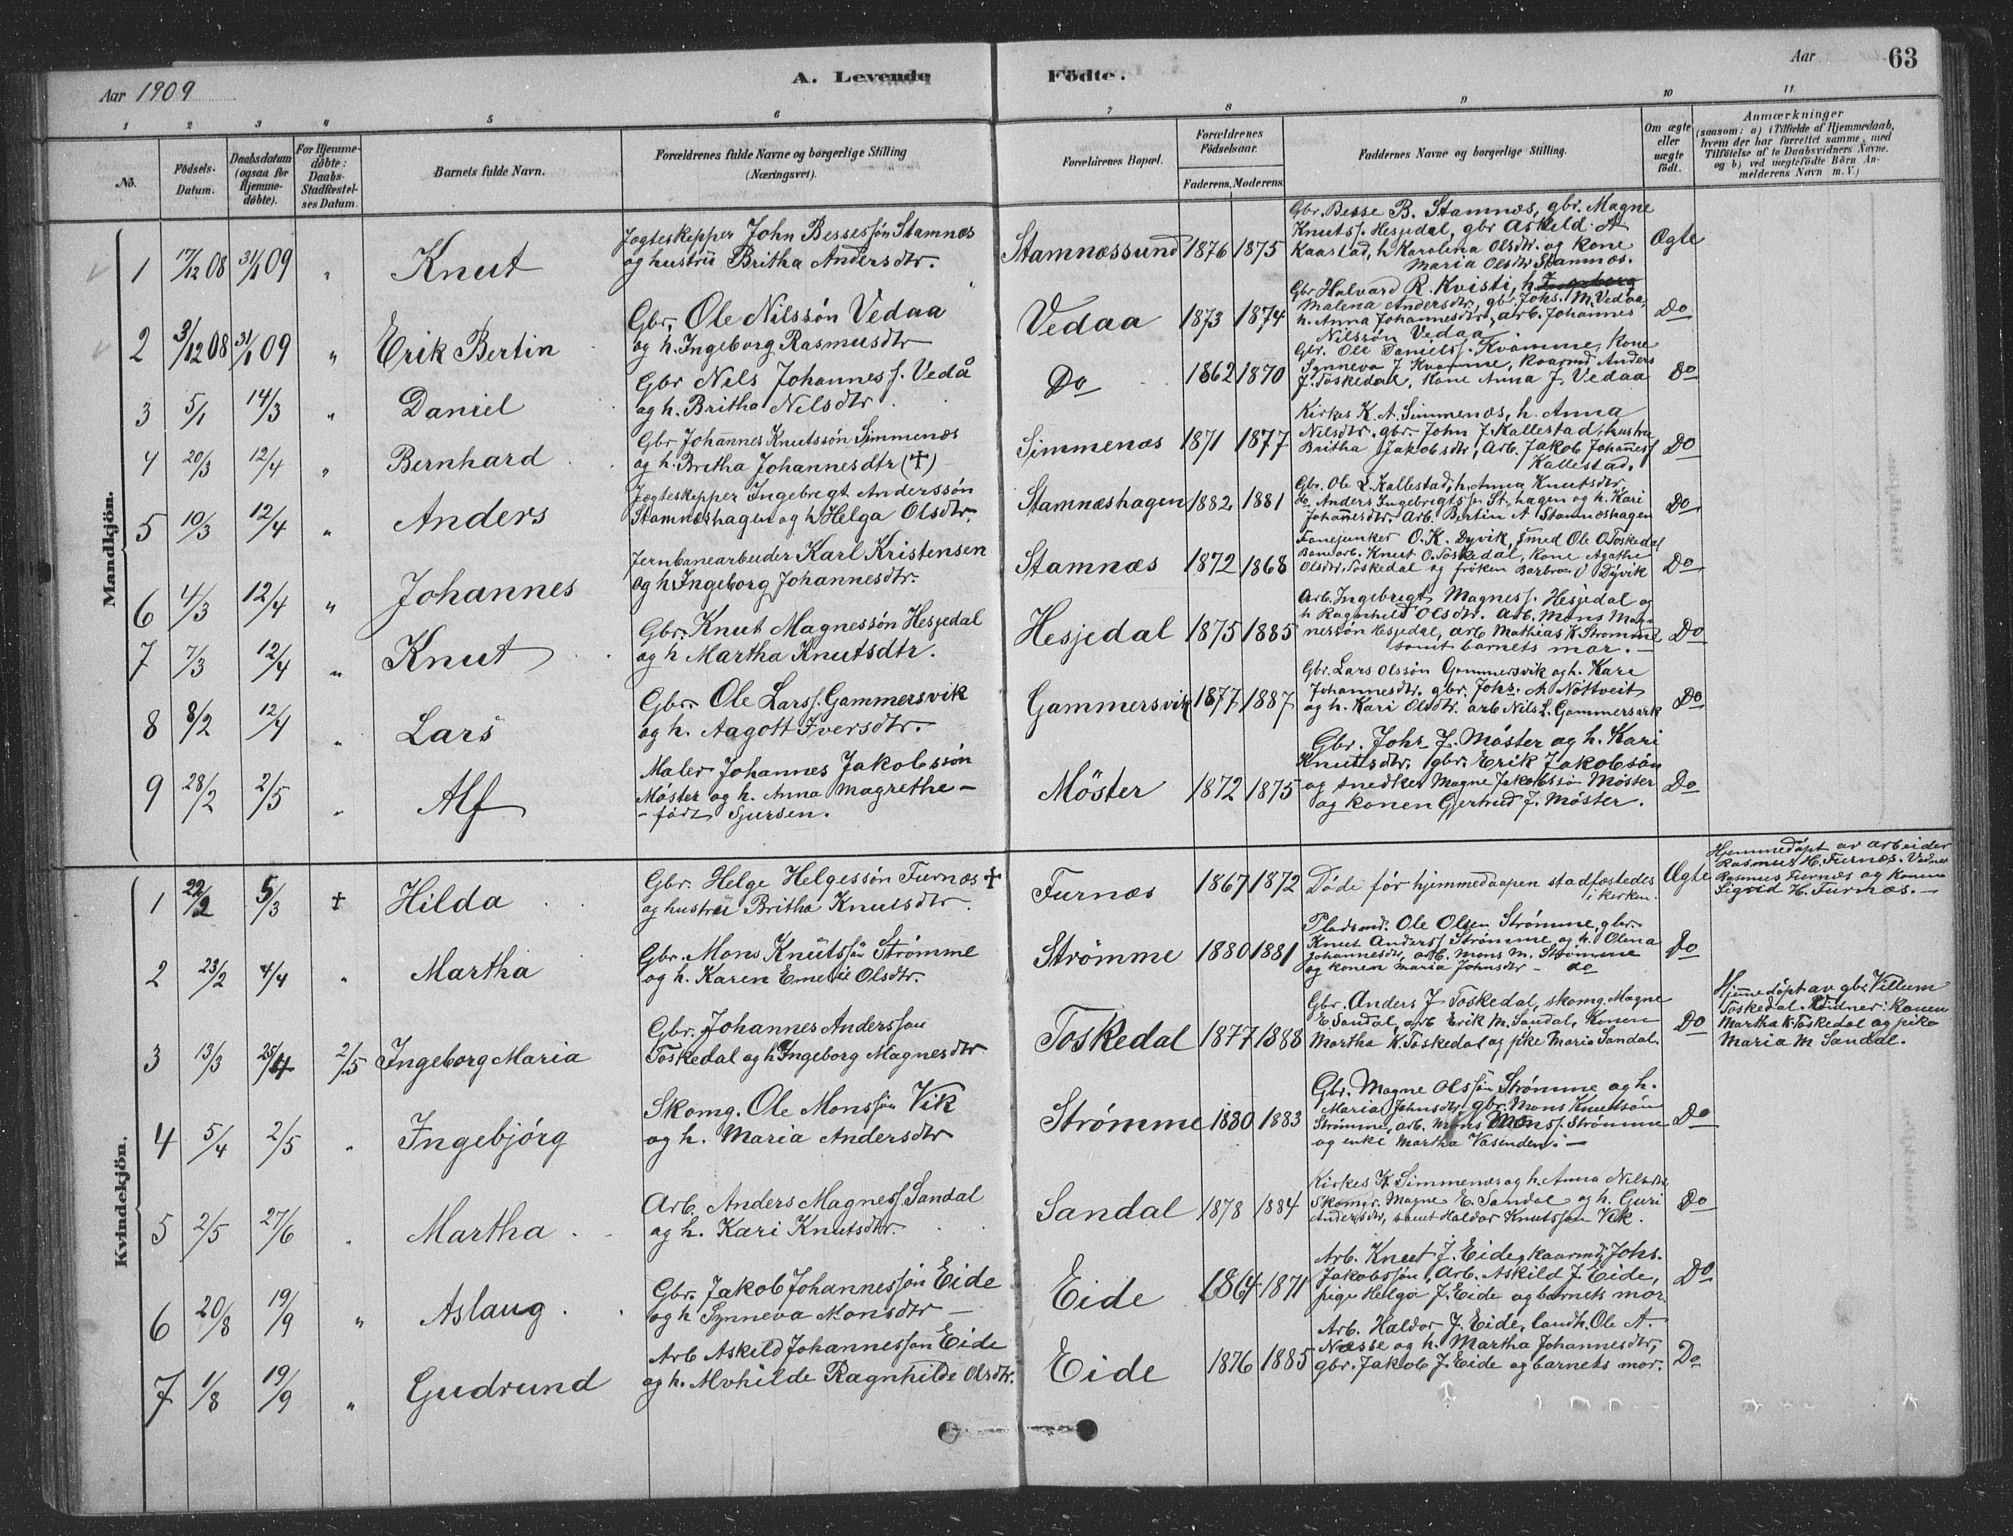 Aar 1909
A. Levende Födte.
Aar 63
1 2 3 4 5 6 7 8 9 10 11
No.
Födsels-Datum.
Daabsdatum (ogsaa for Hjemmedöbte).
For Hjemmedöbte: Daabs-Stadfæstelses Datum.
Barnets fulde Navn.
Forældrenes fulde Navne og borgerlige Stilling (Næringsvei).
Forældrenes Bopæl.
Forældrenes Födselsaar.
Faderens. Moderens.
Faddernes Navne og borgerlige Stilling.
Om ægte eller uægte födt.
Anmærkninger
(saasom: a) i Tilfælde af Hjemmedaab, hvem der har forrettet samme, med Tilföielse af to Daabsvidners Navne, og b) ved uægtefödte Börn Anmelderens Navn m. V.)
Mandkjön.
1 17/12 08 31/1 09 " Knut
Jægteskipper John Bessessøn Stamnæs
og hustru Britha Andersdtr.
Stamnæssund 1876 1875
Gbr. Besse B. Stamnæs, gbr. Magne
Knutss. Hesjedal, gbr Askild A
Kaastad, h Karolina Olsdtr. og kone
Maria Olsdtr Stamnæs.
Ægte
2 3/12 08 31/1 09 " Erik Bertin
Gbr. Ole Nilssön Vedaa
og h. Ingeborg Rasmusdtr
Vedaa 1873 1874
Gbr Halvard R. Kvisti, h. Ingeborg
Malena Andersdtr, gbr. Johs. M. Vedaa,
h. Anna Johannesdtr, arb. Johannes
Nilssøn Vedaa
Do
3 5/1 14/3 " Daniel
Gbr Nils Johanness. Vedå
og h. Britha Nilsdtr
Do 1862 1870
Gbr. Ole Daniels. Kvamme, kone
Synneva J Kvamme, kaarmd Anders
J. Toskedal, kone Anna J. Vedaa
Do
4 20/3 12/4 " Bernhard
Gbr Johannes Knutssön Simmenæs
og h. Britha Johannesdtr (†)
Simmenæs 1871 1877
Kirkes K. A. Simmenæs, h. Anna
Nilsdtr, gbr. John J. Kallestad, hustru
Britha Jakobsdtr, Arb. Jakob Johannes
Kallestad.
Do
5 10/3 12/4 " Anders
Jægteskipper Ingebrigt Anderssön
Stamnæshagen og h Helga Olsdtr.
Stamnæshagen 1882 1881
Gbr. Ole L. Kallestad, h. Anna Knutsdtr,
Anders Ingebrigtss. St.hagen og h. Kari
Johannesdtr. Arb. Bertin A Stamnæshagen
Do
6 4/3 12/4 " Johannes
Jernbanearbeider Karl Kristensen
og h. Ingeborg Johannesdtr.
Stamnæs 1872 1868
Fanejunker O. K. Dyvik, smed Ole O. Toskedal
Banearb. Knut O. Toskedal, kone Agathe
Olsdtr. Toskedal og frøken Barbra O Dyvik
Do
7 7/3 12/4 " Knut
Gbr. Knut Magnessön Hesjedal
og h Martha Knutsdtr.
Hesjedal 1875 1885
Arb. Ingebrigt Magness. Hesjedal og
h Ragnhild Olsdtr. Arb. Mons Mag-
nessøn Hesjedal, arb Mathias K. Strømme
samt barnets mor. –
Do
8 8/2 12/4 " Lars
Gbr. Ole Larss. Gammersvik
og h. Aagott Iversdtr.
Gammersvik 1877 1887
Gbr. Lars Olssøn Gammersvik og h. Kari
Johannesdtr. gbr. Johs. A Nöttveit
og h. Kari Olsdtr. arb Nils L. Gammersvik
Do
9 28/2 2/5 " Alf
Maler Johannes Jakobssön
Möster og h. Anna Magrethe –
– född Sjursen.
Möster 1872 1875
Gbr. Johs J. Möster og h. Kari
Knutsdtr. gbr. Erik Jakobsøn
og snedker Magne Jakobssøn Møster
og konen Gjertrud J. Møster.
Do
Kvindekjön.
1 22/2 5/3 † Hilda
Gbr. Helge Helgessön Furnæs †
og hustru Britha Knutsdtr.
Furnæs 1867 1872
Døde før hjemmedaapen stadfæstedes
i kirken.
Ægte
Hjemmedöpt av arbeider
Rasmus H. Furnæs. Vidner
Rasmus Furnæs og konen
Sigrid H. Furnæs. –
2 23/2 4/4 " Martha
Gbr. Mons Knutssön Strömme
og h. Karen Emelie Olsdtr.
Strømme 1880 1881
Pladsmd. Ole Olsen Strømme, gbr.
Knut Anderss Strømme og h. Olena
Johannesdtr, arb. Mons M. Strømme
og konen Maria Johnsdtr – do
Do
3 13/3 25/4 2/5 Ingeborg Maria
Gbr. Johannes Anderssøn
Toskedal og h Ingeborg Magnesdtr
Toskedal 1877 1888
Gbr. Anders J Toskedal, skomg. Magne
E. Sandal, arb Erik M. Sandal, Konen
Martha K. Toskedal og pike Maria Sandal.
Do
Hjemmedöpt av gbr. Villum
Toskedal. Vidner: Konen
Martha K. Toskedal og pike
Maria M Sandal.
4 5/4 2/5 " Ingebjörg
Skomg. Ole Monssøn Vik
og h. Maria Andersdtr
Strømme 1880 1883
Gbr. Magne Olssøn Strømme og h.
Maria Johnsdtr. gbr. Mons Knutssøn
Strømme, arb. Mons Monss. Strømme
og enke Martha Vasenden. –
Do
5 2/5 27/6 " Martha
Arb. Anders Magness. Sandal
og h. Kari Knutsdtr.
Sandal 1878 1884
Kirkes K. Simmenæs og h. Anna Nilsdtr
Skomgr. Magne E. Sandal og h. Guri
Andersdtr, samt Haldor Knutssøn Vik.
Do
6 20/8 19/9 " Aslaug
Gbr. Jakob Johannessøn Eide
og h Synneva Monsdtr –
Eide 1864 1871
Arb. Knut J. Eide, kaarmd. Johs.
Jakobssøn, Arb. Askild J Eide,
pige Helga J. Eide og barnets mor
Do
7 1/8 19/9 " Gudrund
Arb Askild Johannessøn Eide
og h. Alvhilde Ragnhilde Olsdtr.
Eide 1876 1885
Arb. Haldor J. Eide, landh. Ole A.
Næsse og h. Martha Johannesdtr,
gbr. Jakob J. Eide og barnets mor.
Do